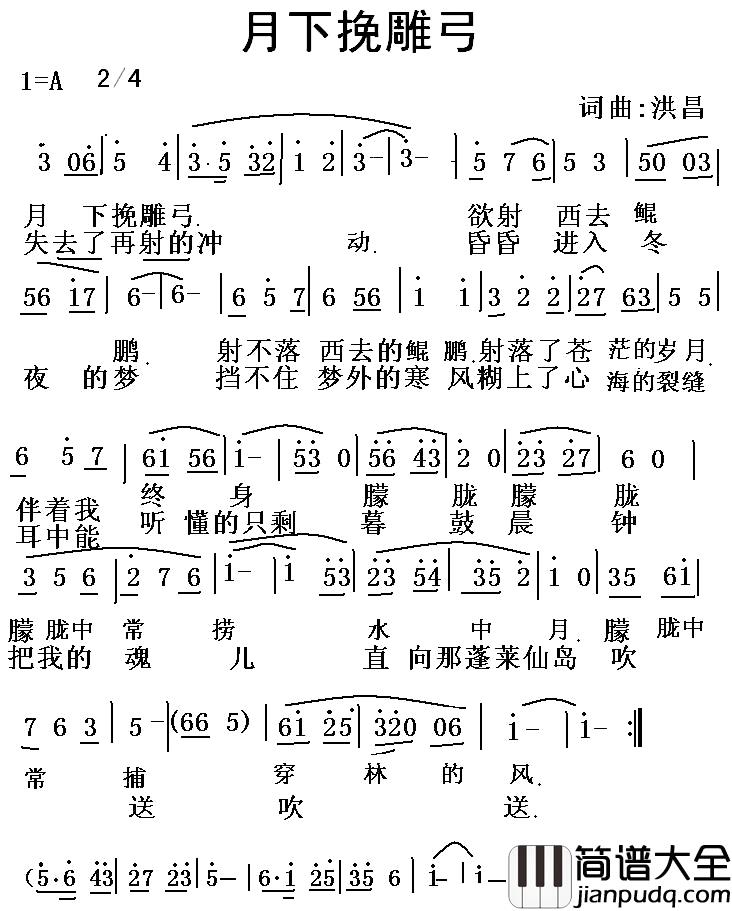 月下挽雕弓
1=A 2/4
词曲:洪昌
3 06 | 5 4 | 3·5 32 | 1 2 | 3- | 3- | 5 7 6 | 5 3 | 50 03 |
月 下挽雕弓. 欲射 西去 鲲
失去了再射的冲 动. 昏昏 进入 冬
56 17 | 6- | 6- | 6 5 7 | 6 56 | 1 1 | 3 2 2 | 27 63 | 5 5 |
鹏. 射不落 西去的鲲 鹏.射落了苍 茫的岁月.
夜 的梦 挡不住 梦外的寒 风糊上了心 海的裂缝
6 5 7 | 61 56 | 1- | 53 0 | 56 43 | 2 0 | 23 27 | 6 0 |
伴着我 终 身 朦 胧朦 胧
耳中能 听 懂的只剩 暮 鼓晨 钟
3 5 6 | 2 7 6 | 1- | 1 53 | 23 54 | 35 2 | 1 0 | 35 61 |
朦 胧中 常 捞 水 中 月.朦 胧中
把我的 魂 儿 直 向那蓬莱仙岛 吹
7 6 3 | 5- | (66 5) | 61 25 | 320 06 | 1- | 1- :‖
常 捕 穿 林 的 风.
送 吹 送.
(5·6 43 | 27 23 | 5- | 6·1 25 | 35 6 | 1- | 1-
简谱大全
jianpudq.com